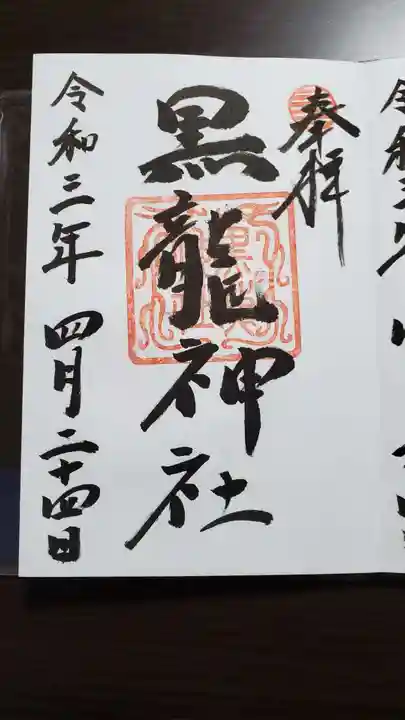 奉拝
黒龍神社
令和三年 四月二十四日
令和三年